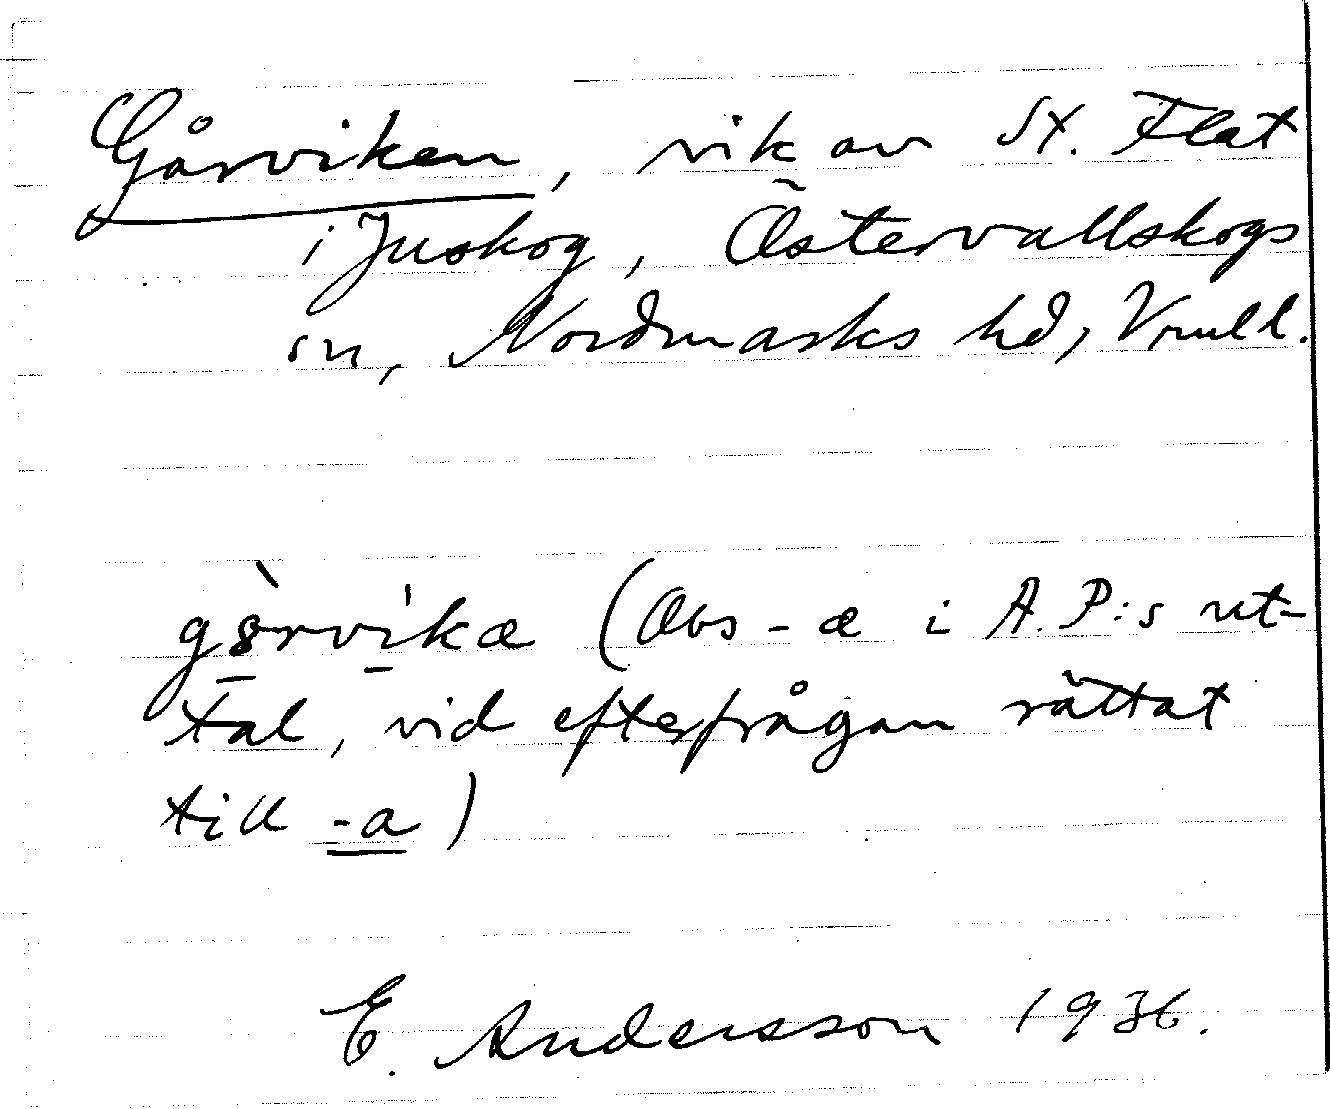 Gårviken, vik av St. Flat
i Juskog, Östervallskogs
sn, Nordmarks hd, Vrml.
gàrvika (Obs -æ i A.P:s ut-
tal, vid efterfrågan rättat
till -a)
E. Andersson 1936.